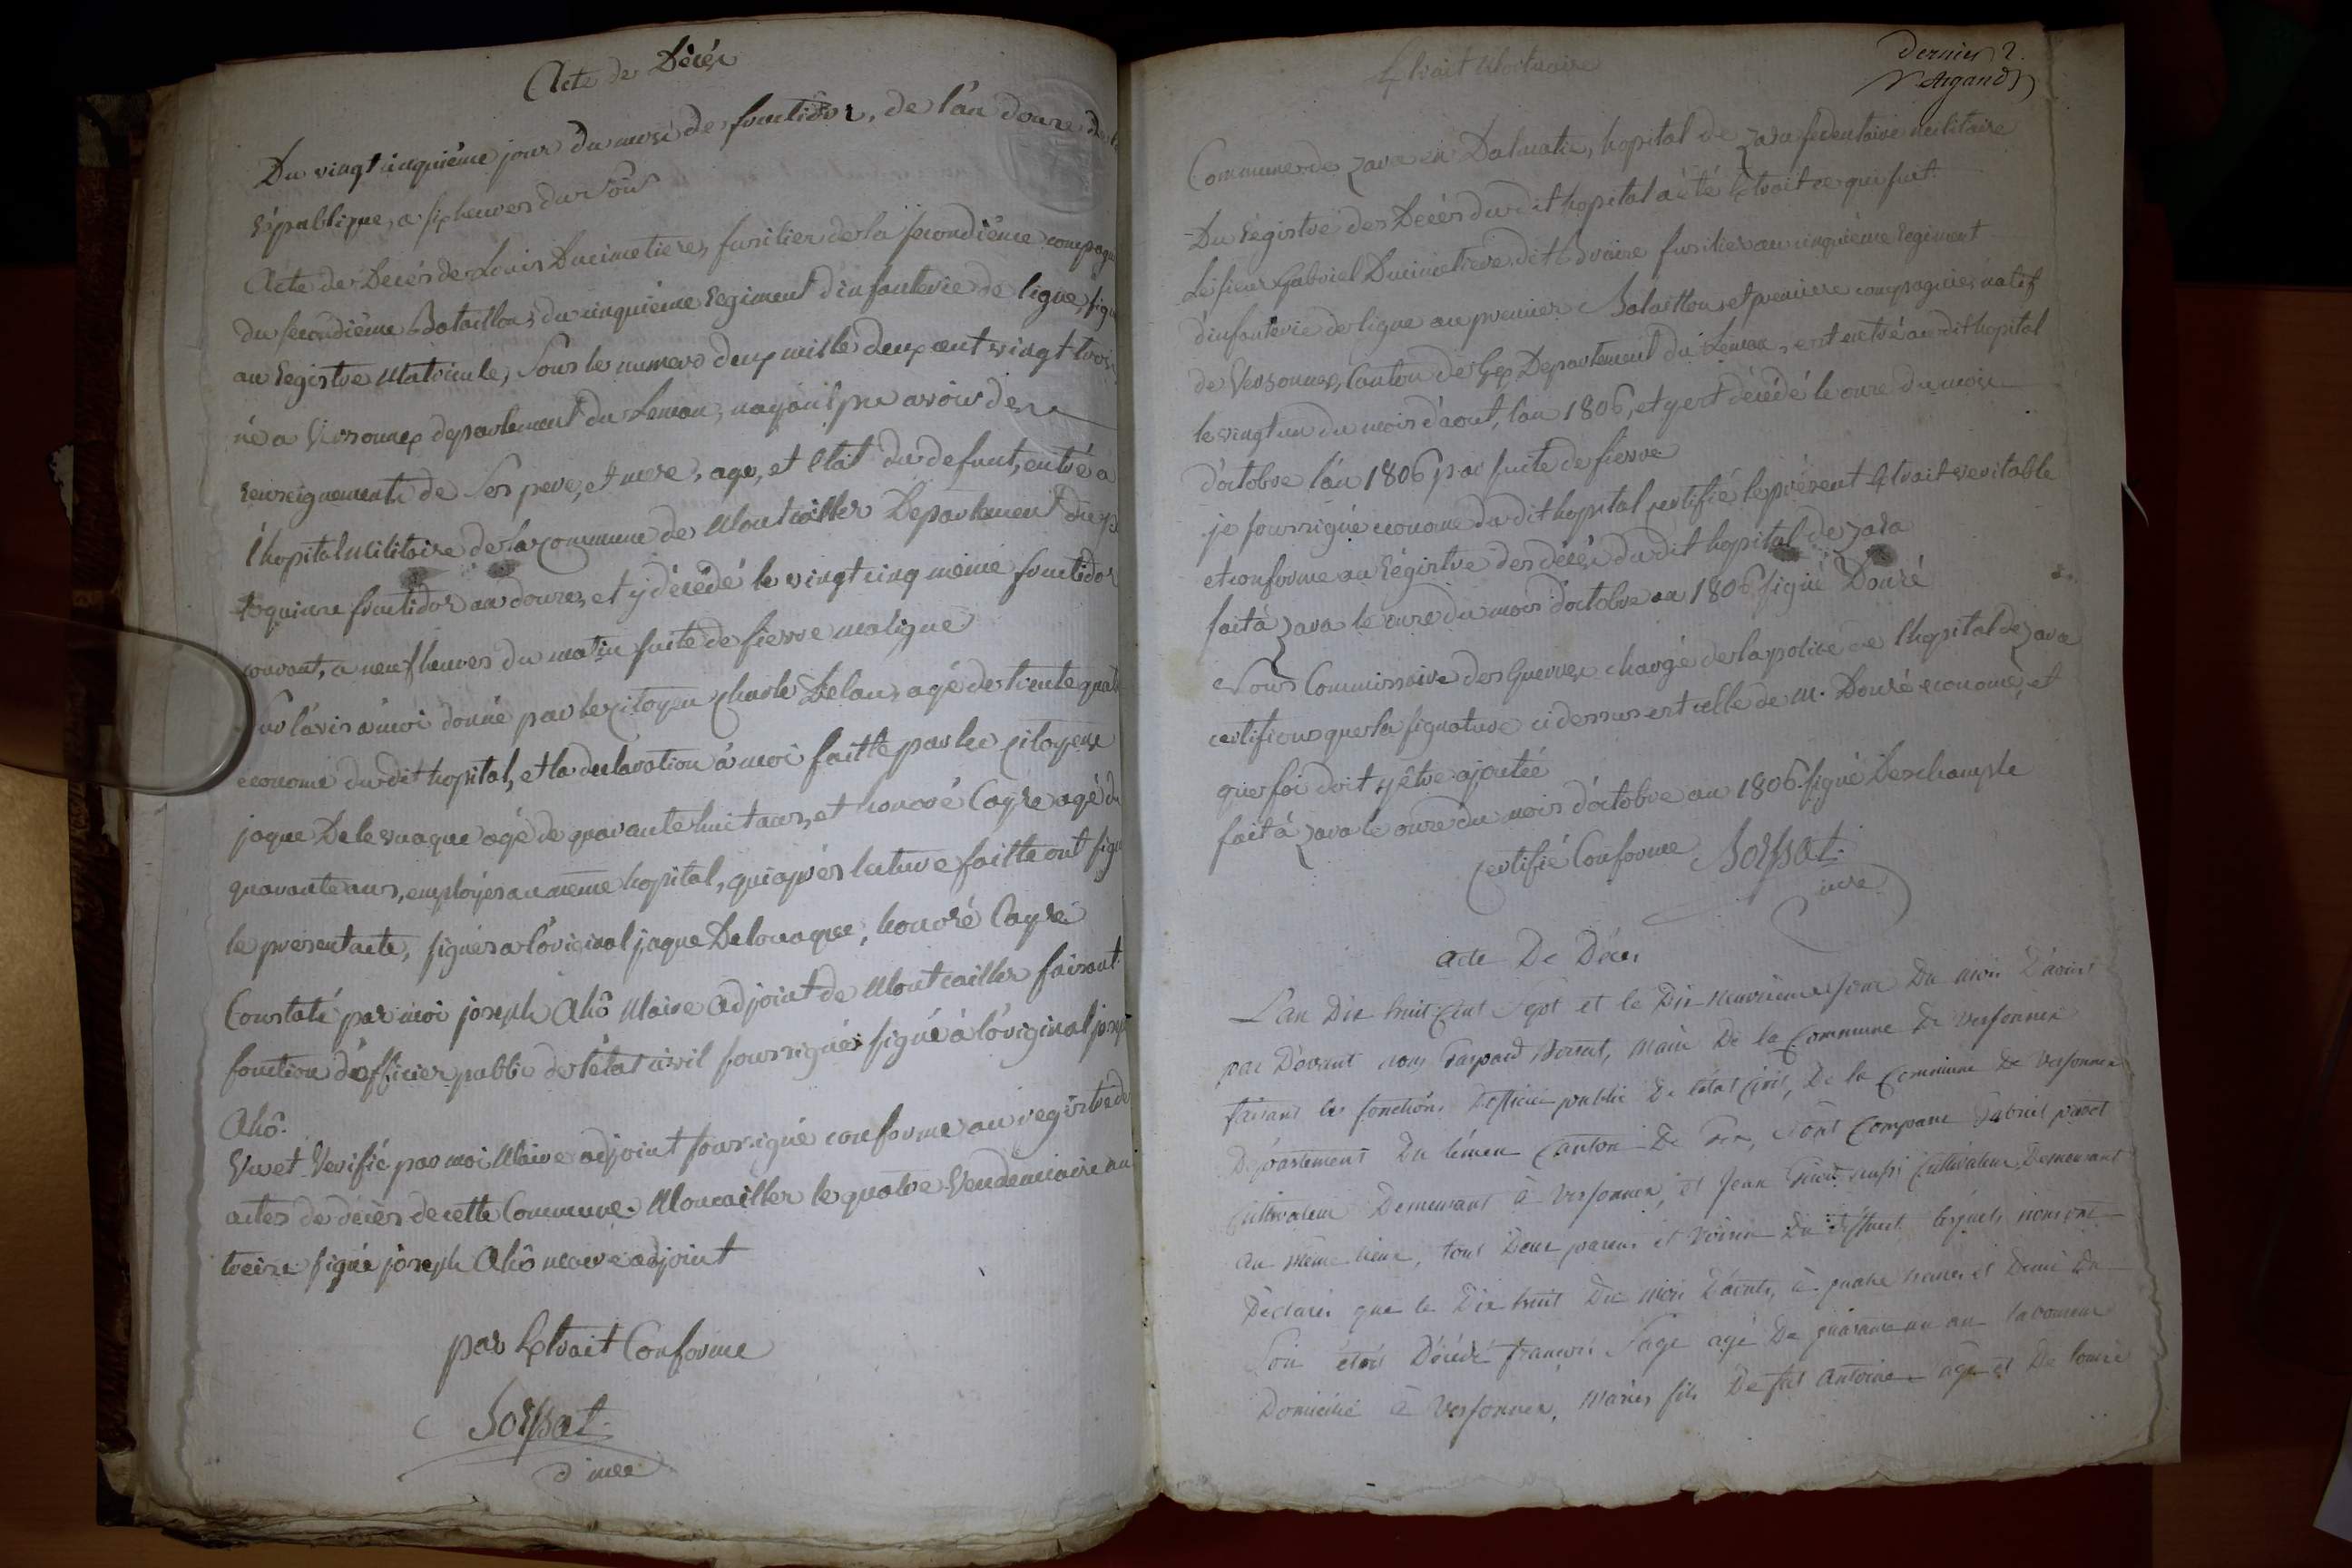 Acte de Décés
Du vingt cinquiéme jour du mois de fructidor, de l'an douze de la
République, a six heures du Soir
Acte de Décés de Louis Ducimetiere, fusilier de la secondiéme compagn
du secondiéme Bataillon du cinquiéme Regiment d'infanterie de ligne, sign
au Registre Matricule, Sous le numero deux mille deux cent vingt trois
né a Versonnex departement du Leman, n'ayant pu avoir de
renseignements de Ses pere, et mere, age, et Etat du defunt, entré a
l'hopital Militaire de la commune de Montcailler Departement du p
le quinze fructidor an douze, et y décédé le vingt cinq méme fructidor
courant, a neuf heures du matin suite de fievre maligne
Sur l'avis a moi donné par le citoyen Charle Lelau, agé de trente quat
econome du dit hopital, et la declaration à moi faitte par les citoyens
jaque Delevaque agé de quarante huit ans, et honoré Cayre agé de
quarante ans, employés au méme hopital, qui aprés lecture faitte ont sign
le present acte, signés a l'original jaque Delouaque, honoré Cayre
Constaté par moi joseph Ahô Maire adjoint de Montcailler faisant
fonction d'officier public de l'état civil soussigné signé à l'original josep
Ahô.
Vu et Verifié par moi Maire adjoint soussigné conforme au registre de
actes de décès de cette Commune. Moncailler le quatre Vendemiaire an
treize signé joseph Ahô maire adjoint
par Extrait Conforme
Extrait Mortuaire
dernier 2.
Commune de Zara en Dalmatie, hopital de Zara sedentaire militaire
Du Régistre des Décés du dit hopital a été Extrait ce qui suit
Le sieur Gabriel Ducimetiere dit fusilier au cinquiéme Regiment
d'infanterie de ligne au premier Bataillon, et premiere compagnie, natif
de Versonnex, Canton de Gex Departement du Leman, est entré au dit hopital
le vingt un du mois d'aout, l'an 1806, et y est décédé le onze du mois
d'octobre l'an 1806 par suite de fievre
je soussigné econome du dit hopital certifié le présent Extrait veritable
et conforme au Régistre des décés du dit hopital de Zara
fait à Zara le onze du mois d'octobre an 1806 signé Douré
Nous Commissaire des Guerres chargé de la police de l'hopital de Zara
certifions que la signature ci dessus est celle de M. Douré econome, et
que foi doit y être ajoutée
fait à Zara le onze du mois d'octobre an 1806. signé Deschamps
Certifié Conforme
acte De Décès
L'an Dix huit Cent Sept et le Dix neuvieme jour Du mois
par Devant nous Gaspard maire De la Commune De versonnex
faisant les fonctions D'officier public De l'état Civil, De la Commune De versonnex
Département Du léman Canton De Gex, Sont Comparus Gabriel
Cultivateur Demeurant à versonnex, et Jean aussi Cultivateur Demeurant
au même lieux, tous Deux parens et voisin Du Deffunt lesquels nous ont
Déclarés que le Dix huit Du mois à quatre heures et Demi Du
Soir étoit Décédé françois Sage agé De quarante un an laboureur
Domicilié à versonnex, Maries fils De fut Antoine Sage et De